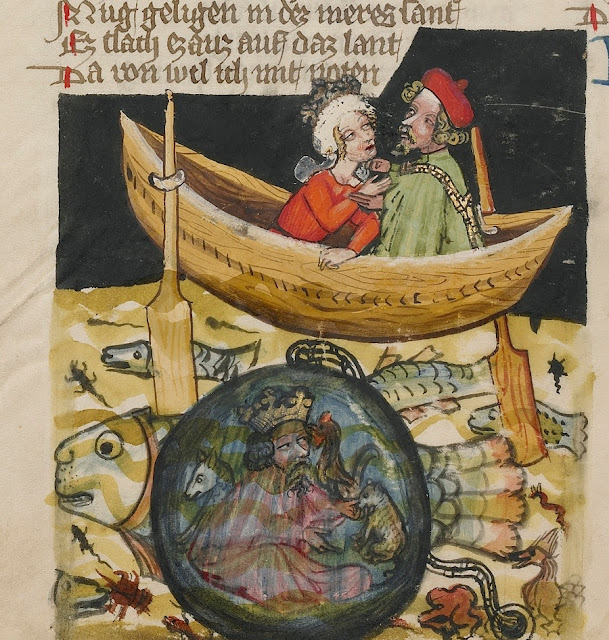 Mug geligen in dez merez sant
Ez slach ez auz auf daz lant
Da von wil ich mit noten